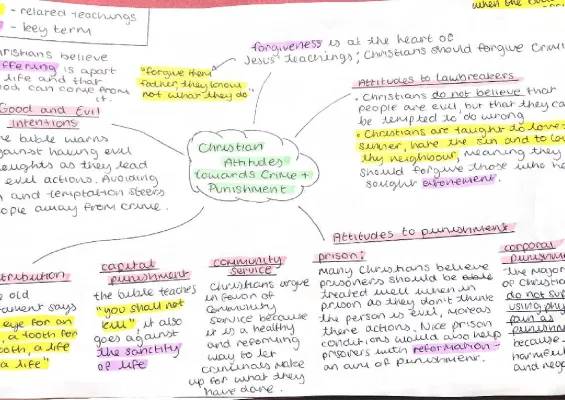 - related teachings
- key term
when she
forgiveness is at the heart of
Jesus' teachings; Christians should forgive
christians believe
suffering is apart
life and that
can come from
it.
"forgive them
father, they know
not what they do"
Attitudes to lawbreakers
• Christians do not believe that
people are evil, but that they can
be tempted to do wrong
• Christians are taught to love
sinner, hate the sin and to
thy neighbour, meaning they
should forgive those who
sought atonement.
Good and Evil
Intentions
bible warns
against having evil
thoughts as they lead
evil actions. Avoiding
and temptation steers
people away from crime.
Christian
Attitudes
towards Crime +
Punishment
Attitudes to punishment
retribution
old
testament says
eye for an
, a tooth for
tooth, a life
a life"
capital
punishment
the bible teaches
"you shall not
kill", it also
goes against
the sanctity
of life
community
service
Christians argue
in favor of
community
service because
it is a healthy
and reforming
way to let
criminals make
up for what they
have done.
prison:
many Christians believe
prisoners should be
treated well when in
prison as they don't think
the person is evil, moreas
there actions. Nice prison
conditions would also help
prisoners with reformation -
an aim of punishment.
corporal
punishment
the major
of Christia
do not sup
using phy
pain as
punishmen
because
harmful
and nega